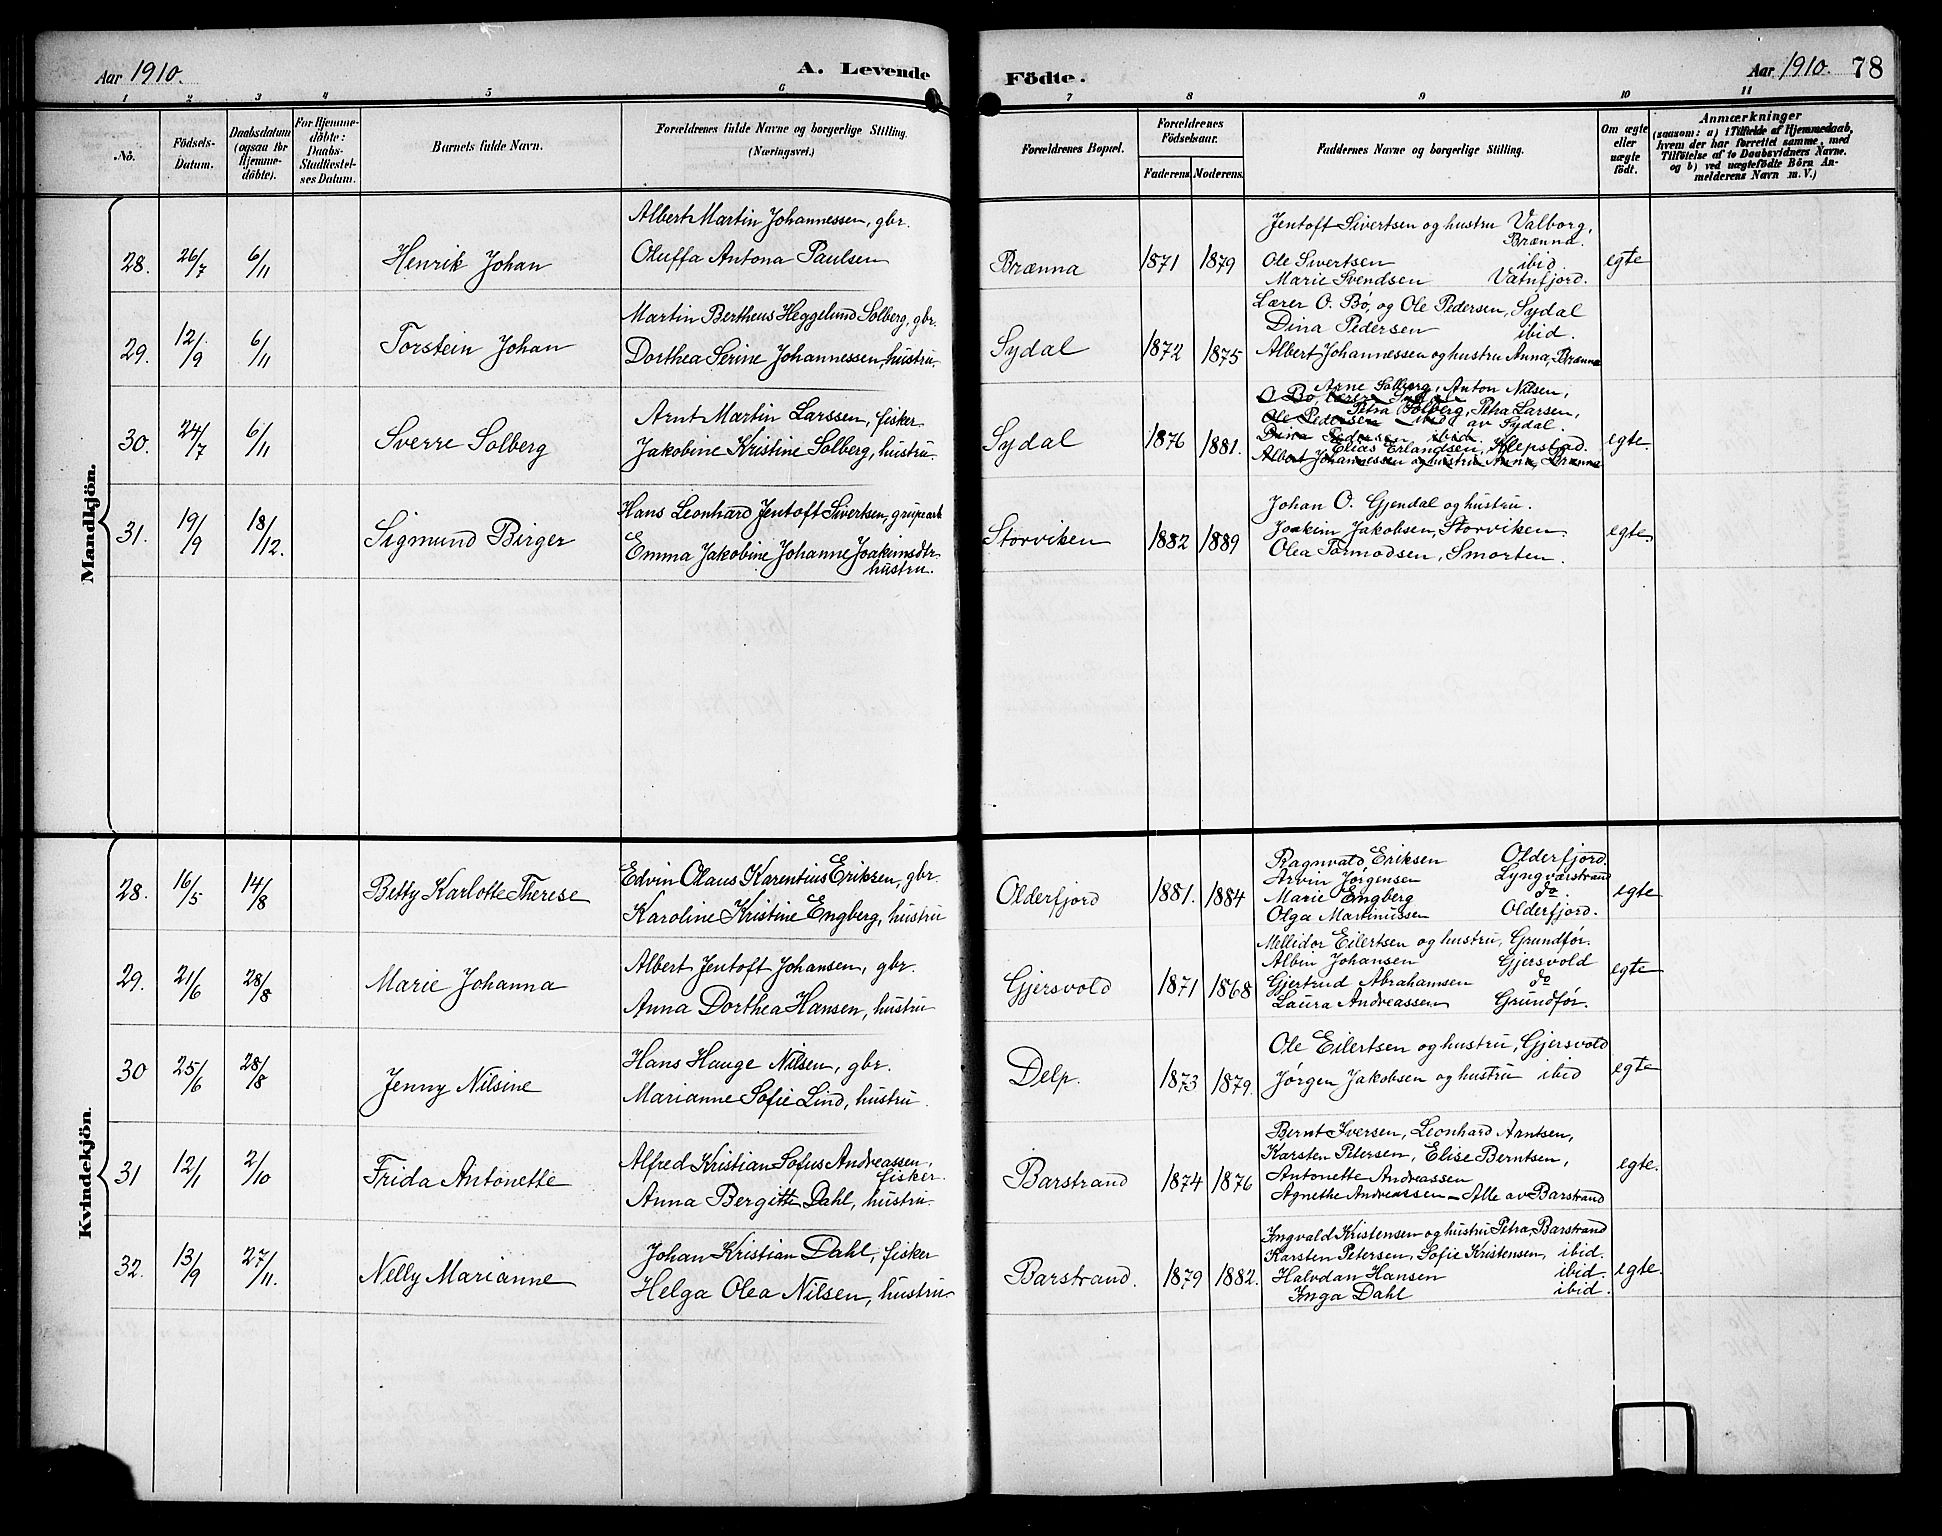 Aar 1910.
A. Levende
Födte.
Aar 1910. 78
1 2 3 4 5 6 7 8 9 10 11
No.
Födsels-
Datum.
Daabsdatum
(ogsaa for
Hjemme-
döbte).
For Hjemme-
döbte:
Daabs-
Stadfæstel-
ses Datum.
Barnets fulde Navn.
Forældrenes fulde Navne og borgerlige Stilling.
(Næringsvei.)
Forældrenes Bopæl.
Forældrenes
Födselsaar.
Faderens. Moderens.
Faddernes Navne og borgerlige Stilling.
Om ægte
eller
uægte
födt.
Anmærkninger
(saasom: a) i Tilfælde af Hjemmedaab,
hvem der har forrettet samme, med
Tilföielse af to Daabsvidners Navne.
og b) ved uægtefödte Börn An-
melderens Navn m. V.)
Mandkjön.
28. 26/7 6/11 Henrik Johan
Albert Martin Johannessen, gbr.
Oluffa Antona Paulsen
Brænna 1871 1879
Jentoft Sivertsen og hustru Valborg,
Brænna.
Ole Sivertsen ibid
Marie Svendsen Vatnfjord.
egte
29. 12/9 6/11 Torstein Johan
Martin Bertheus Heggelund Solberg, gbr.
Dorthea Serine Johannessen, hustru.
Sydal 1872 1875
Lærer O. Bö, og Ole Pedersen, Sydal
Dina Pedersen ibid.
Albert Johannessen og hustru Anna, Brænna
30. 24/7 6/11 Sverre Solberg
Arnt Martin Larssen, fisker
Jakobine Kristine Solberg, hustru.
Sydal 1876 1881.
Arne Solberg, Anton Nilsen,
O Bö, Lærer Sydal
Petra Solberg, Petra Larsen,
Ole Pedersen ibid av Sydal.
Dina Pedersen ibid.
Elias Erlandsen, Klepstad.
Albert Johannessen og hustru Anna, Brænna
egte.
31. 19/9 18/12. Sigmund Birger
Hans Leonhard Jentoft Sivertsen, grubearb
Emma Jakobine Johanne Joakimsdtr.
hustru.
Storviken 1882 1889
Johan O. Gjendal og hustru.
Joakim Jakobsen, Storviken.
Olea Tormodsen, Smorten.
egte.
Kvindekjön.
28. 16/5 14/8 Betty Karlotte Therese
Edvin Olaus Karentius Eriksen, gbr.
Karoline Kristine Engberg, hustru
Olderfjord 1881. 1884
Ragnvald Eriksen Olderfjord.
Arvin Jørgensen Lyngværstrand
Marie Engberg do
Olga Martinussen Olderfjord.
egte
29. 21/6 28/8 Marie Johanna
Albert Jentoft Johansen, gbr.
Anna Dorthea Hansen, hustru
Gjersvold 1871 1868
Mellidor Eilertsen og hustru, Grundfør.
Albin Johansen Gjersvold
Gjertrud Abrahamsen do
Laura Andreassen Grundfør.
egte
30 25/6 28/8 Jenny Nilsine
Hans Hauge Nilsen, gbr.
Marianne Sofie Lind, hustru.
Delp. 1873 1879.
Ole Eilertsen og hustru, Gjersvold
Jørgen Jakobsen og hustru ibid
egte
31 12/1 2/10 Frida Antonette
Alfred Kristian Sofus Andreassen,
fisker.
Anna Bergitt Dahl, hustru.
Barstrand 1874 1876
Bernt Iversen, Leonhard Arntsen,
Karsten Petersen, Elise Berntsen,
Antonette Andreassen
Agnethe Andreassen – Alle av Barstrand
egte.
32. 13/9 27/11. Nelly Marianne
Johan Kristian Dahl, fisker
Helga Olea Nilsen, hustru
Barstrand. 1879 1882.
Ingvald Kristensen og hustru Petra, Barstrand
Karsten Petersen, Sofie Kristensen, ibid.
Halvdan Hansen ibid.
Inga Dahl ibid.
egte.